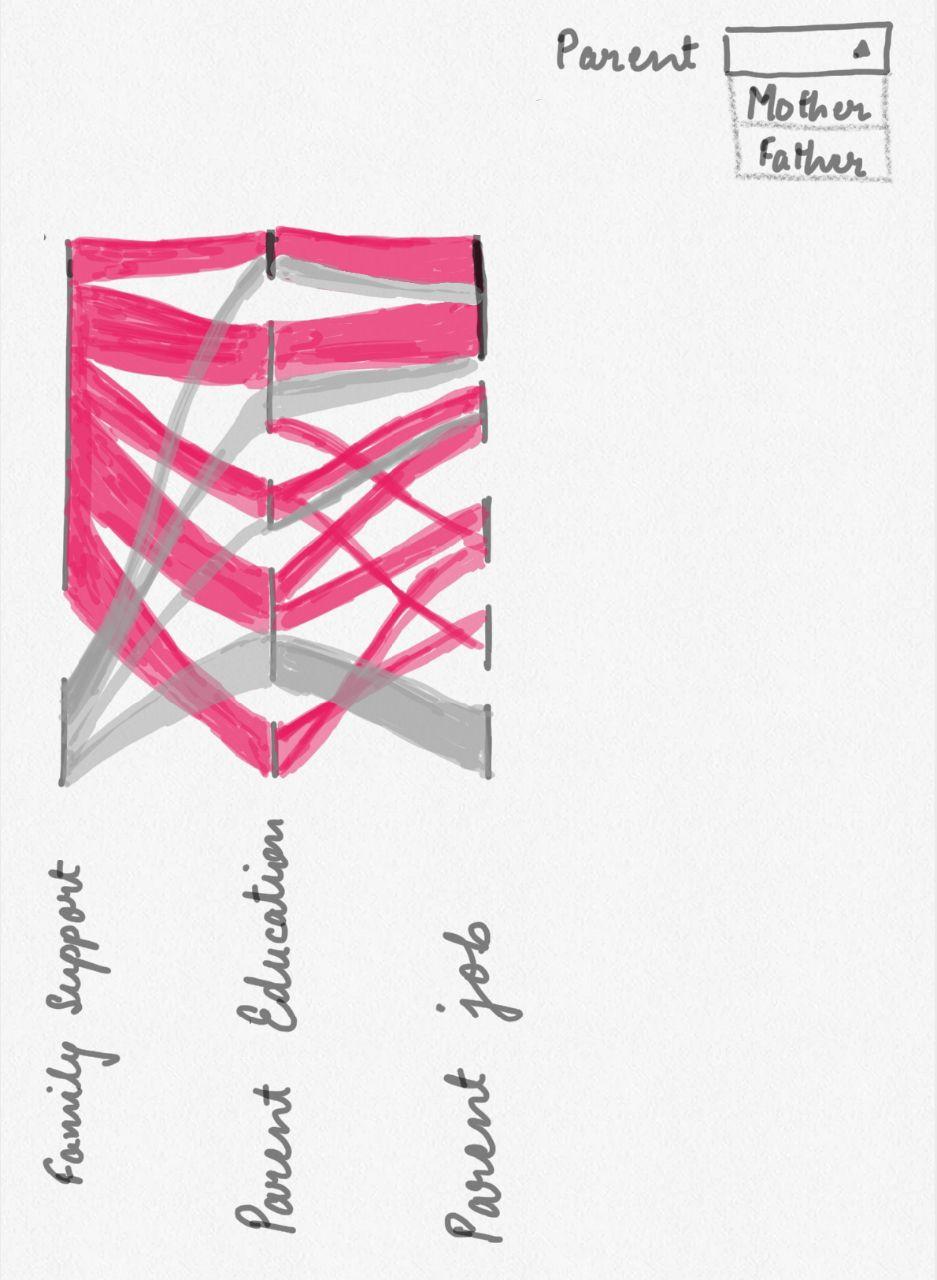 Parent
Mother
Father
Family Support
Parent Education
Parent job